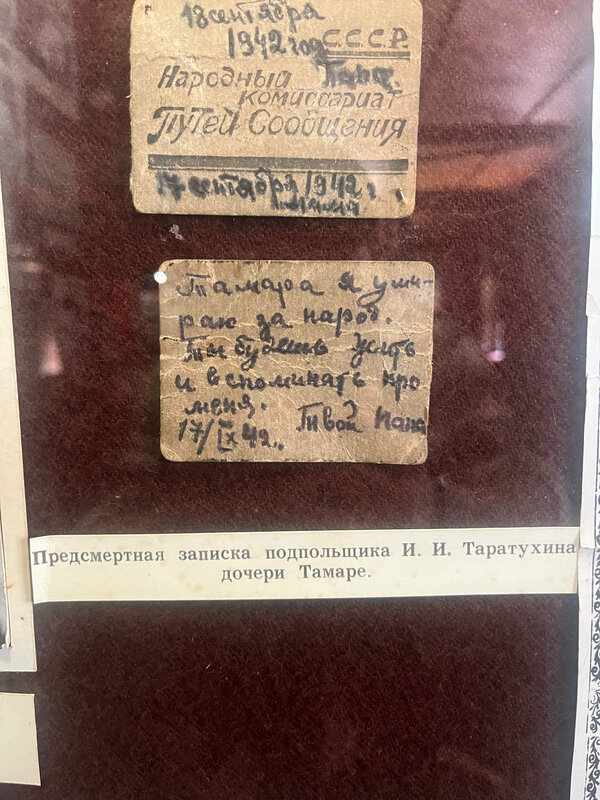 18 сентября
1942 год С.С.С.Р.
Народный
Комиссариат
Путей Сообщения
17 сентября 1942 г.
Тамара я уми-
раю за народ.
Ты будешь жить
и вспоминать про
меня.
17/IX 42.. Твой папа
Предсмертная записка подпольщика И. И. Таратухина
дочери Тамаре.